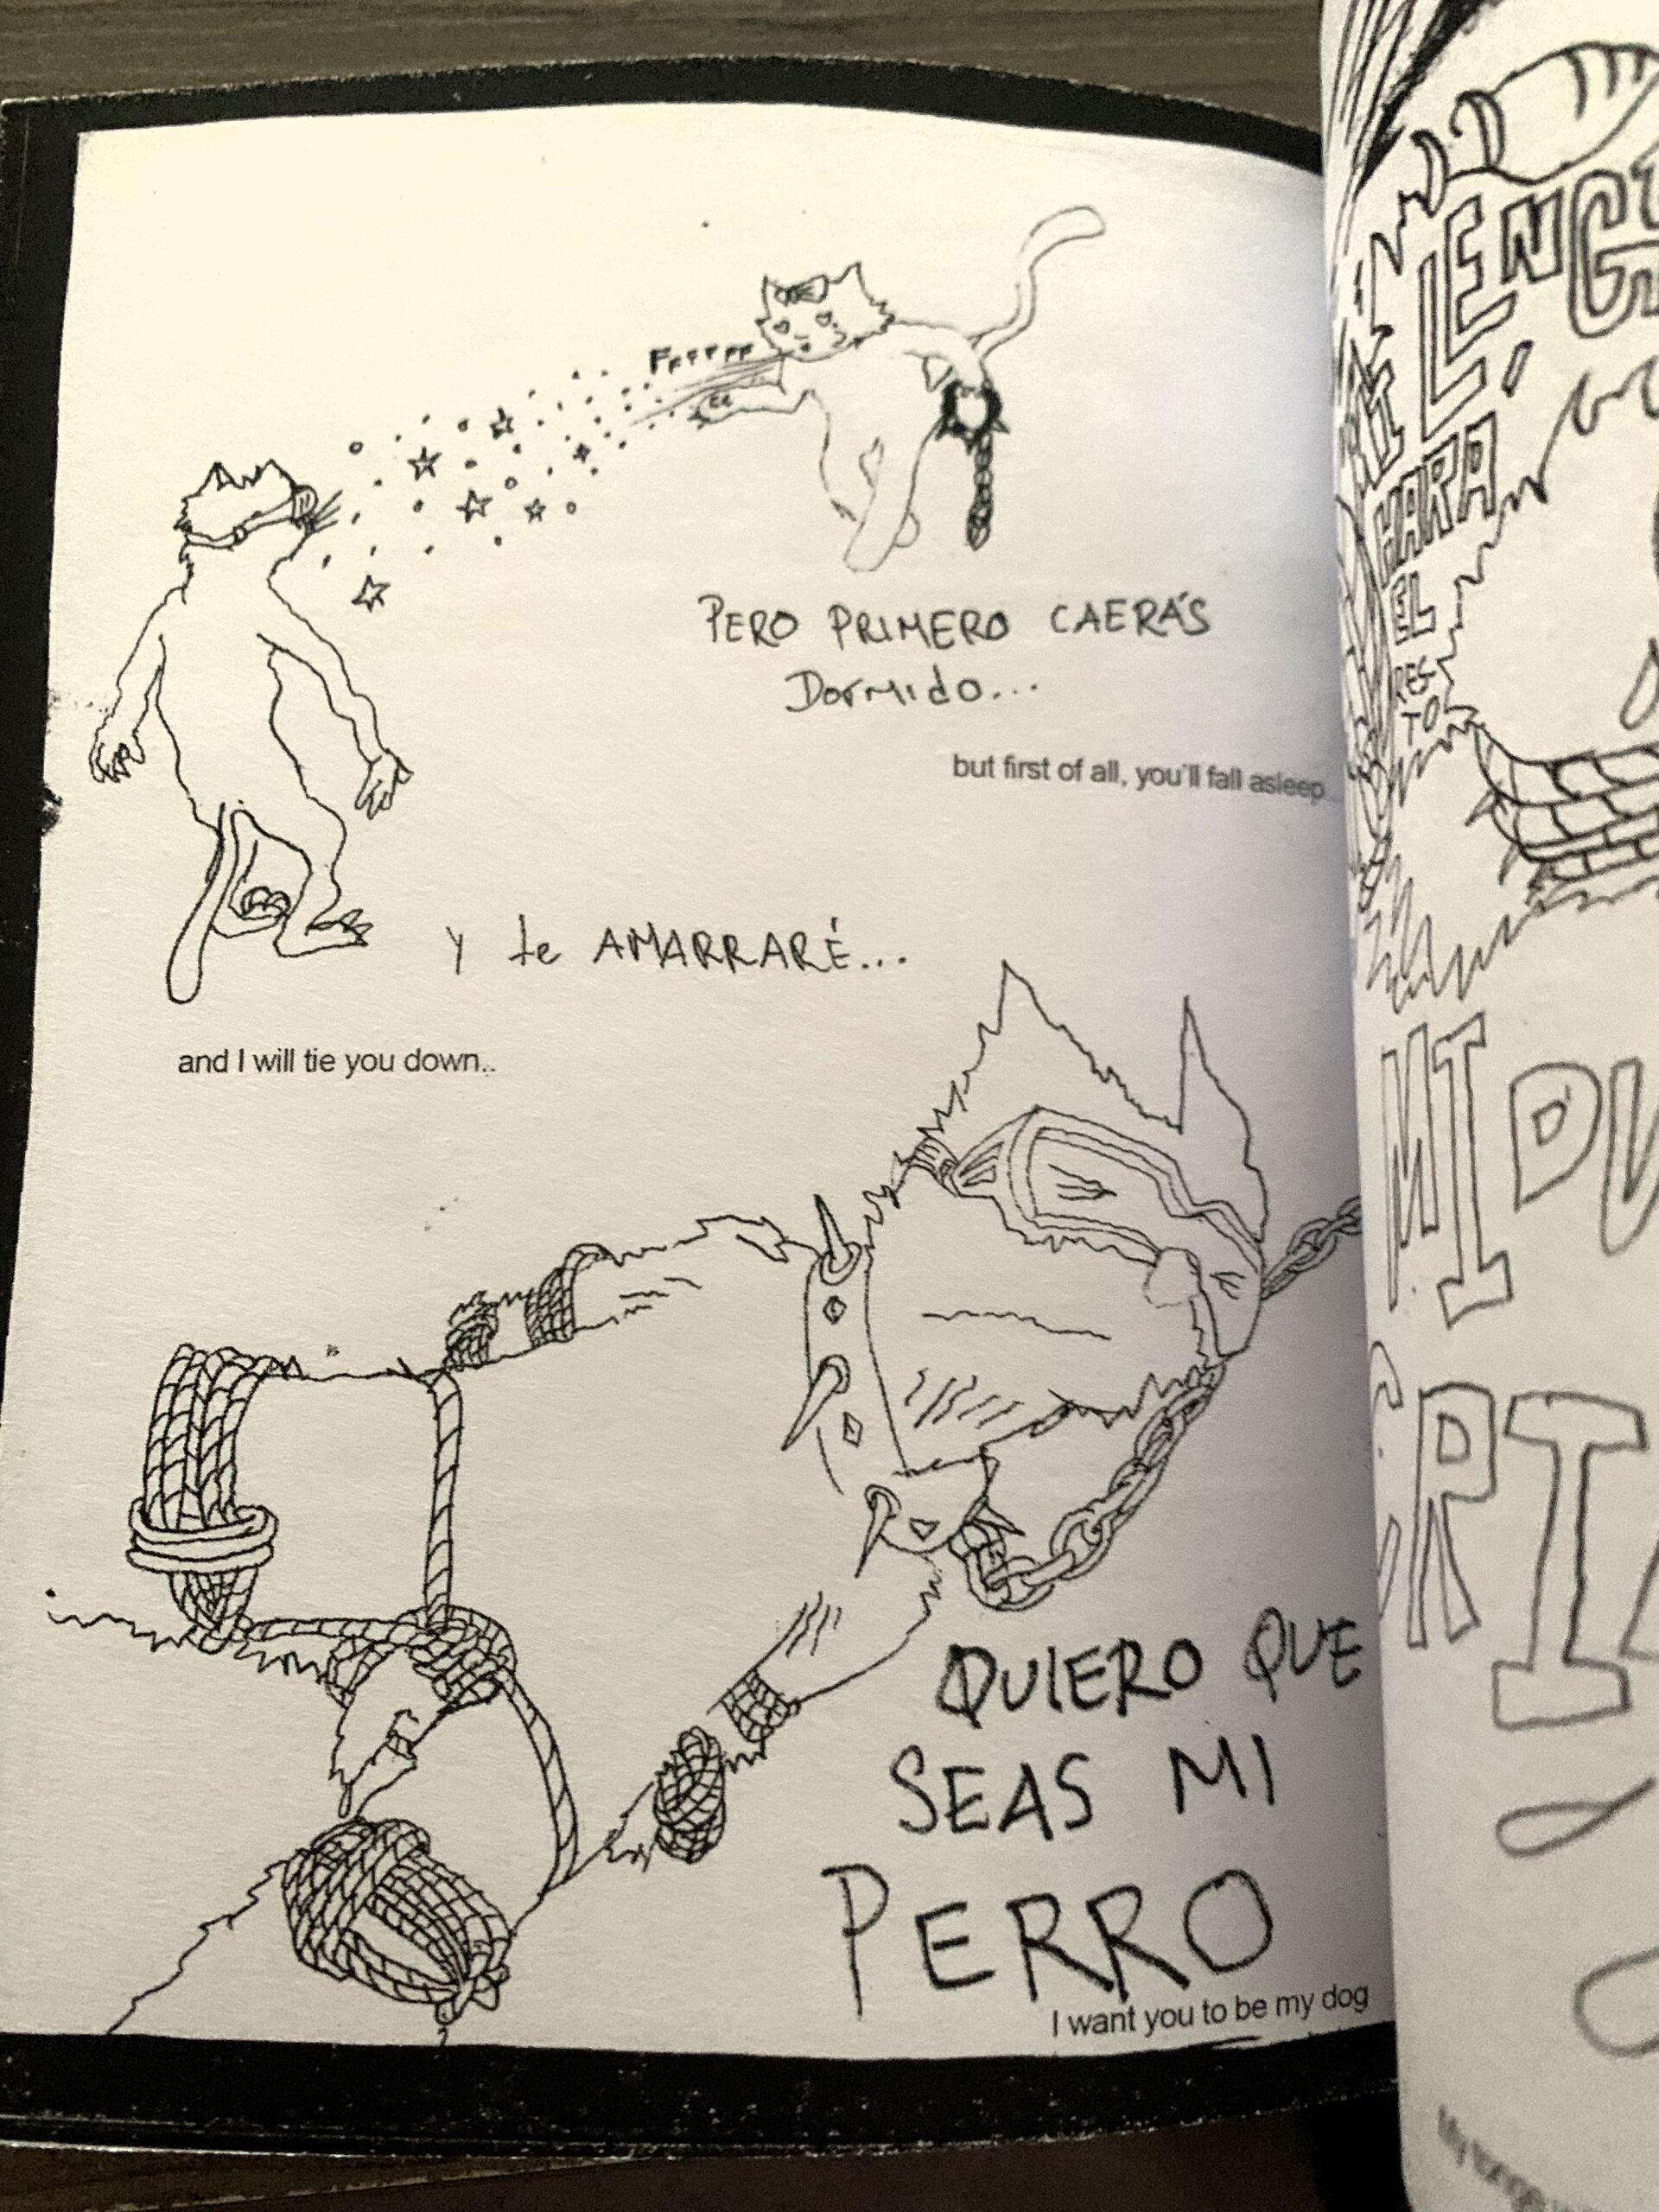 Frrrrr
PERO PRIMERO CAERÁS
DORMIDO...
but first of all, you'll fall asleep
Y te AMARRARÉ...
and I will tie you down..
QUIERO QUE
SEAS MI
PERRO
I want you to be my dog
HARA
EL
RES
TO
MI